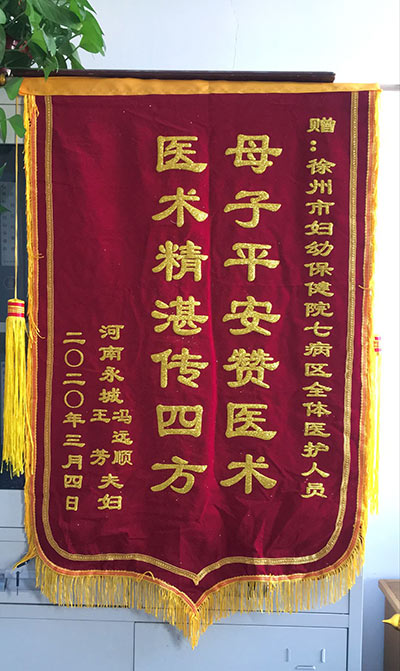 赠：徐州市妇幼保健院七病区全体医护人员
母子平安赞医术
医术精湛传四方
河南永城冯远顺
王芳夫妇
二〇二〇年三月四日